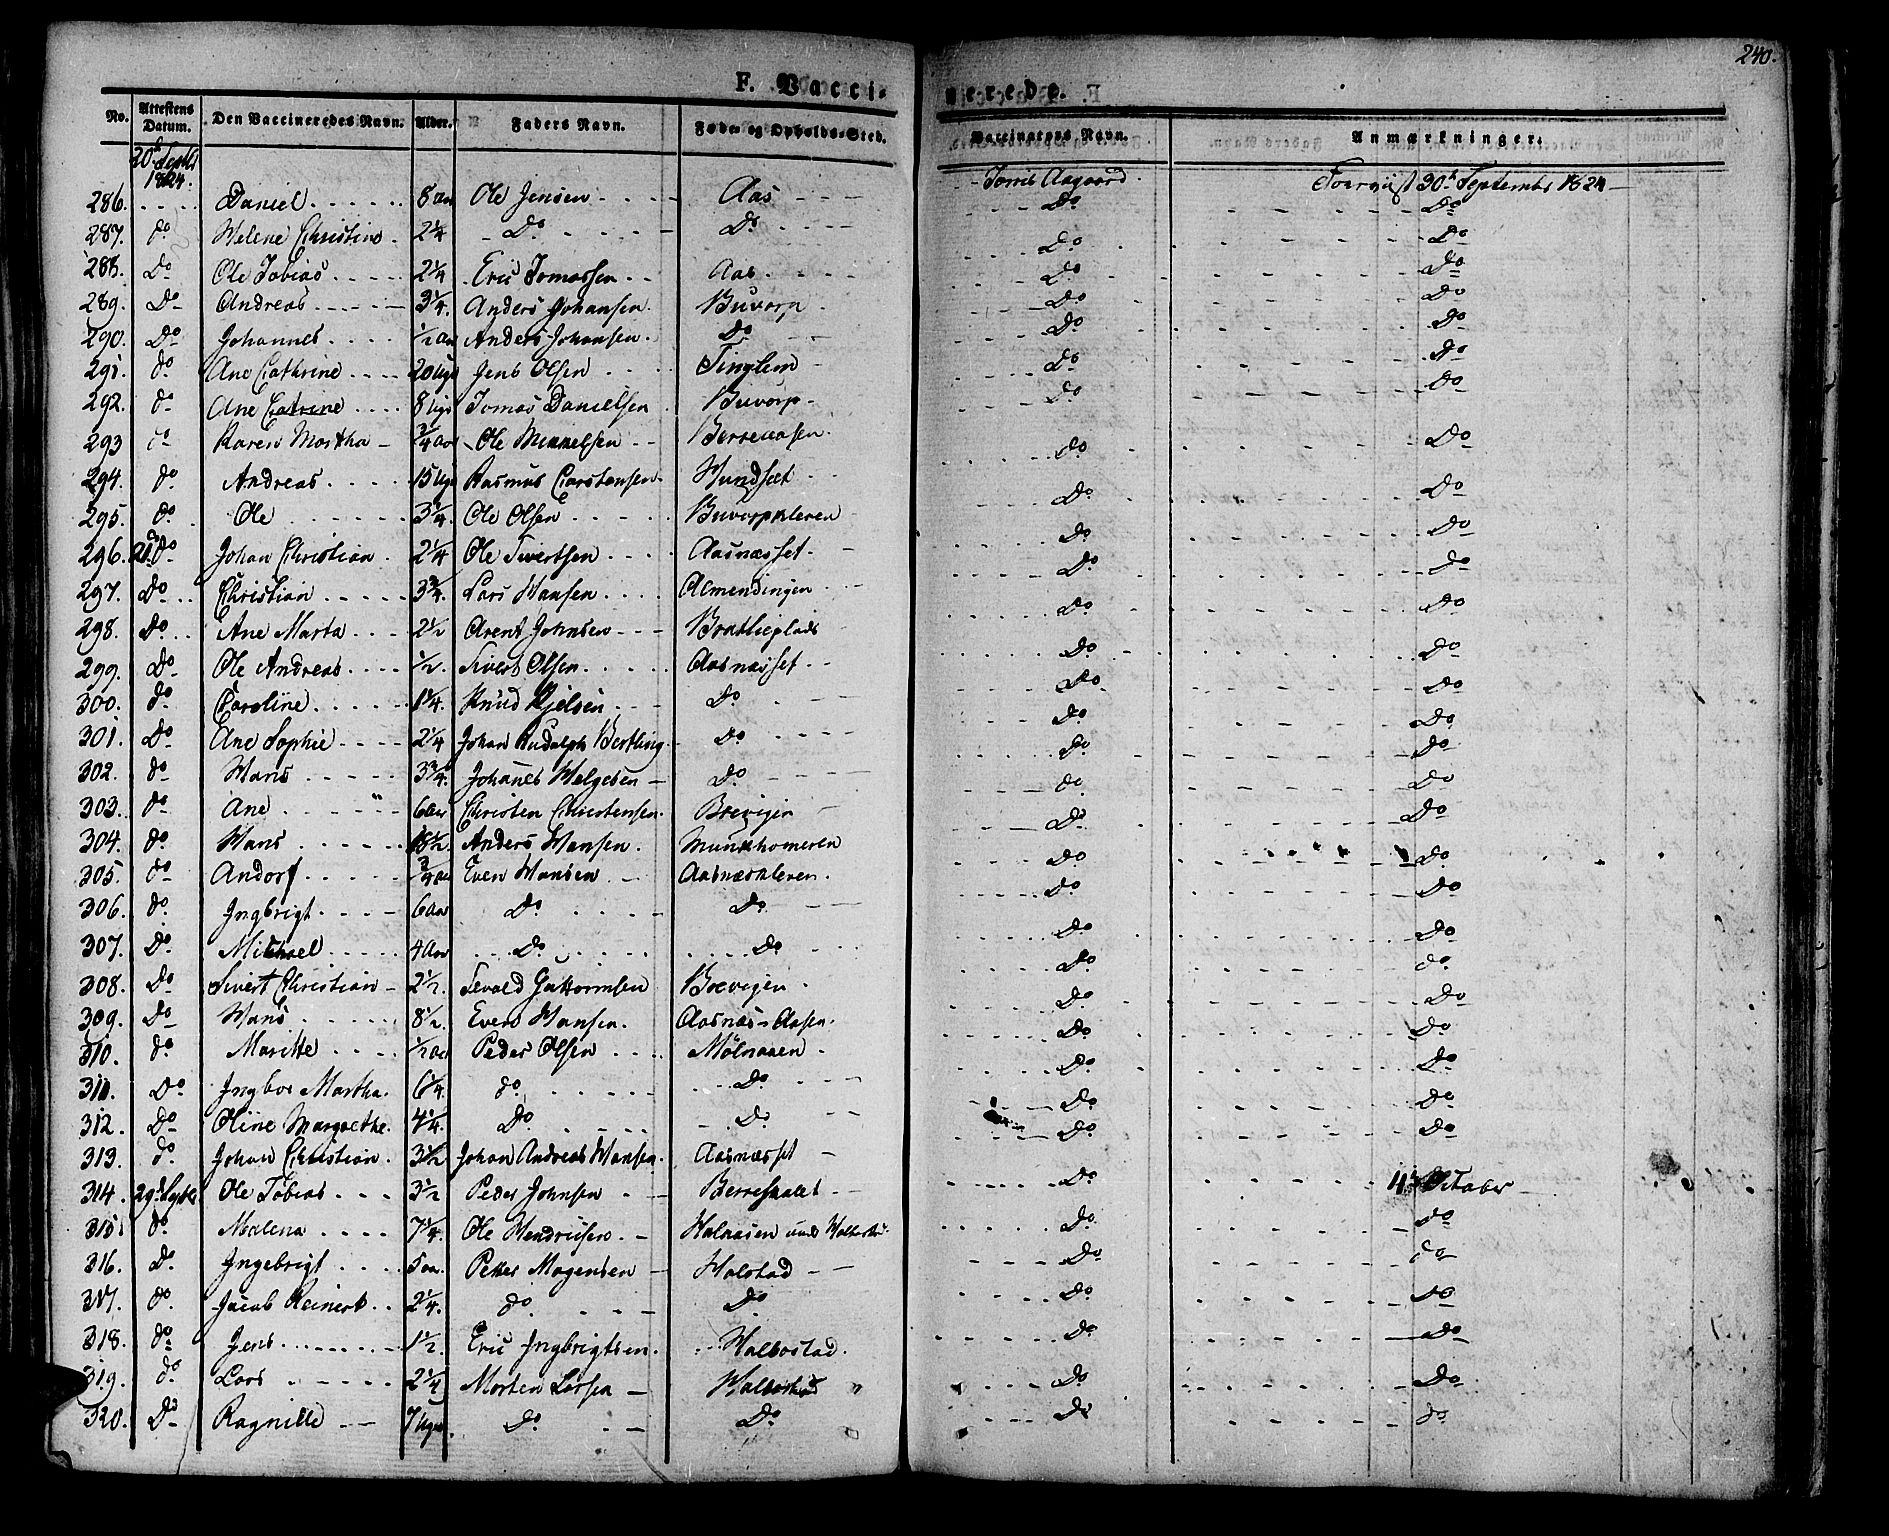 240.
F. Vaccinerede.
No. Attestens Datum. Den Vaccineredes Navn. Alder. Faders Navn. Føde- og Opholds-Sted. Vaccinators Navn. Anmærkninger.
20de Septbr 1824.
286. Daniel 8 Aar Ole Jensen Aas Tomas Aagaard Foreviist 30te September 1824
287. do Helene Christine 2 1/4 Do Do Do Do
288. Do Ole Tobias 2 1/4 Eric Tomassen Aas Do Do
289. Do Andreas 3 1/4 Anders Johansen Buvarp Do Do
290. Do Johannes 1/2 Aar Anders Johansen Do Do Do
291. do Ane Cathrine 20 Uger Jens Olsen Tinglem Do Do
292. do Ane Catrine 8 Uger Tomas Danielsen Buvarp Do Do
293 do Karen Martha 3/4 Aar Ole Mikkelsen Berreaasen Do Do
294. do Andreas 15 Uger Rasmus Carstensen Hundsæt Do Do
295. do Ole 3 1/4 Ole Olsen Buvarpkleven Do Do
296. 21de Do Johan Christian 2 1/4 Ole Sivertsen Aasnæsset Do Do
297. Do Christian 3 3/4 Lars Hansen Almendingen Do Do
298. Do Ane Marta 2 1/2 Arent Johnsen Bratlieplads Do Do
299. Do Ole Andreas 1/2 Sivert Olsen Aasnæsset Do Do
300. do Caroline 1 1/4 Knud Kjelsen Do Do Do
301. Do Ane Sophie 2 1/4 Johan Rudolph Bertling Do Do Do
302. do Hans 3 3/4 Johanes Helgesen Do Do Do
303. do Ane 6 Aar Christen Christensen Brevigen do Do
304. do Hans 18 1/2 Anders Hansen Munkhomeren Do Do
305. do Andorf 3/4 Aar Even Hansen Aasnæskleven Do Do
306. do Ingbrigt 6 Aar Do Do Do Do
307. Do Michael 4 Aar Do Do Do Do
308. Do Sivert Christian 2 1/2 Sevald Guttormsen Brevigen Do do
309. Do Hans 8 1/2 Even Hansen Aasnæs-Aasen Do Do
310. do Maritte 1/2 Aar Peder Olsen Mølnaaen Do Do
311. Do Ingbor Martha 6 1/4 do Do Do Do
312. Do Oline Margrethe 4 1/4 Do Do Do Do
313. do Johan Christian 3 1/2 Johan Andreas Hansen Aasnæsset Do Do
314. 29de Septbr Ole Tobias 3 1/2 Peder Johnsen Berreskallet Do October
315 do Malena 7 1/4 Ole Hendriksen Halnaasen Do Do
316. Do Ingebrigt 5 Aar Petter Mogensen Halstad Do do
317. do Jacob Reinert 2 1/4 do Do Do Do
318. do Jens 1 1/2 Eric Ingbrigtsen Halbostad Do Do
319. do Lars 2 1/4 Morten Larsen Halbostad Do Do
320. Do Ragnille 7 Uger Do Do Do do